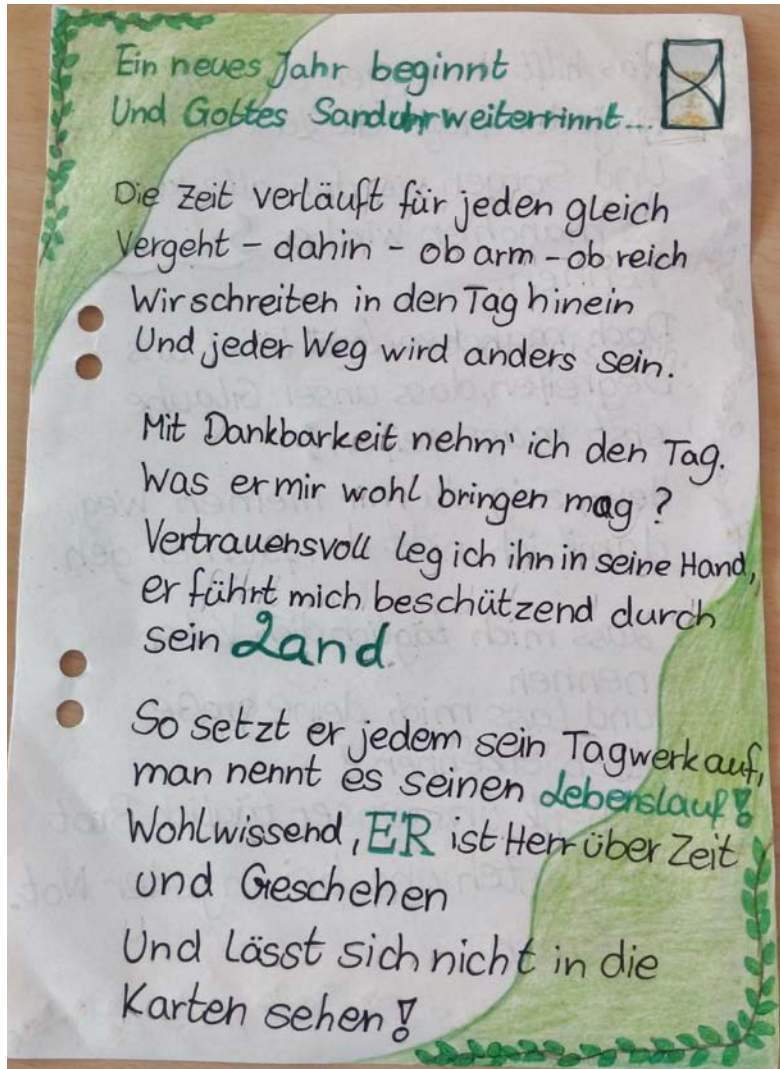 Ein neues Jahr beginnt
Und Gottes Sanduhr weiterrinnt...
Die Zeit verläuft für jeden gleich
Vergeht - dahin - ob arm - ob reich
Wir schreiten in den Tag hinein
Und jeder Weg wird anders sein.
Mit Dankbarkeit nehm' ich den Tag.
Was er mir wohl bringen mag?
Vertrauensvoll leg ich ihn in seine Hand,
er führt mich beschützend durch
sein Land.
So setzt er jedem sein Tagwerk auf,
man nennt es seinen Lebenslauf!
Wohlwissend, ER ist Herr über Zeit
und Geschehen
Und lässt sich nicht in die
Karten sehen!